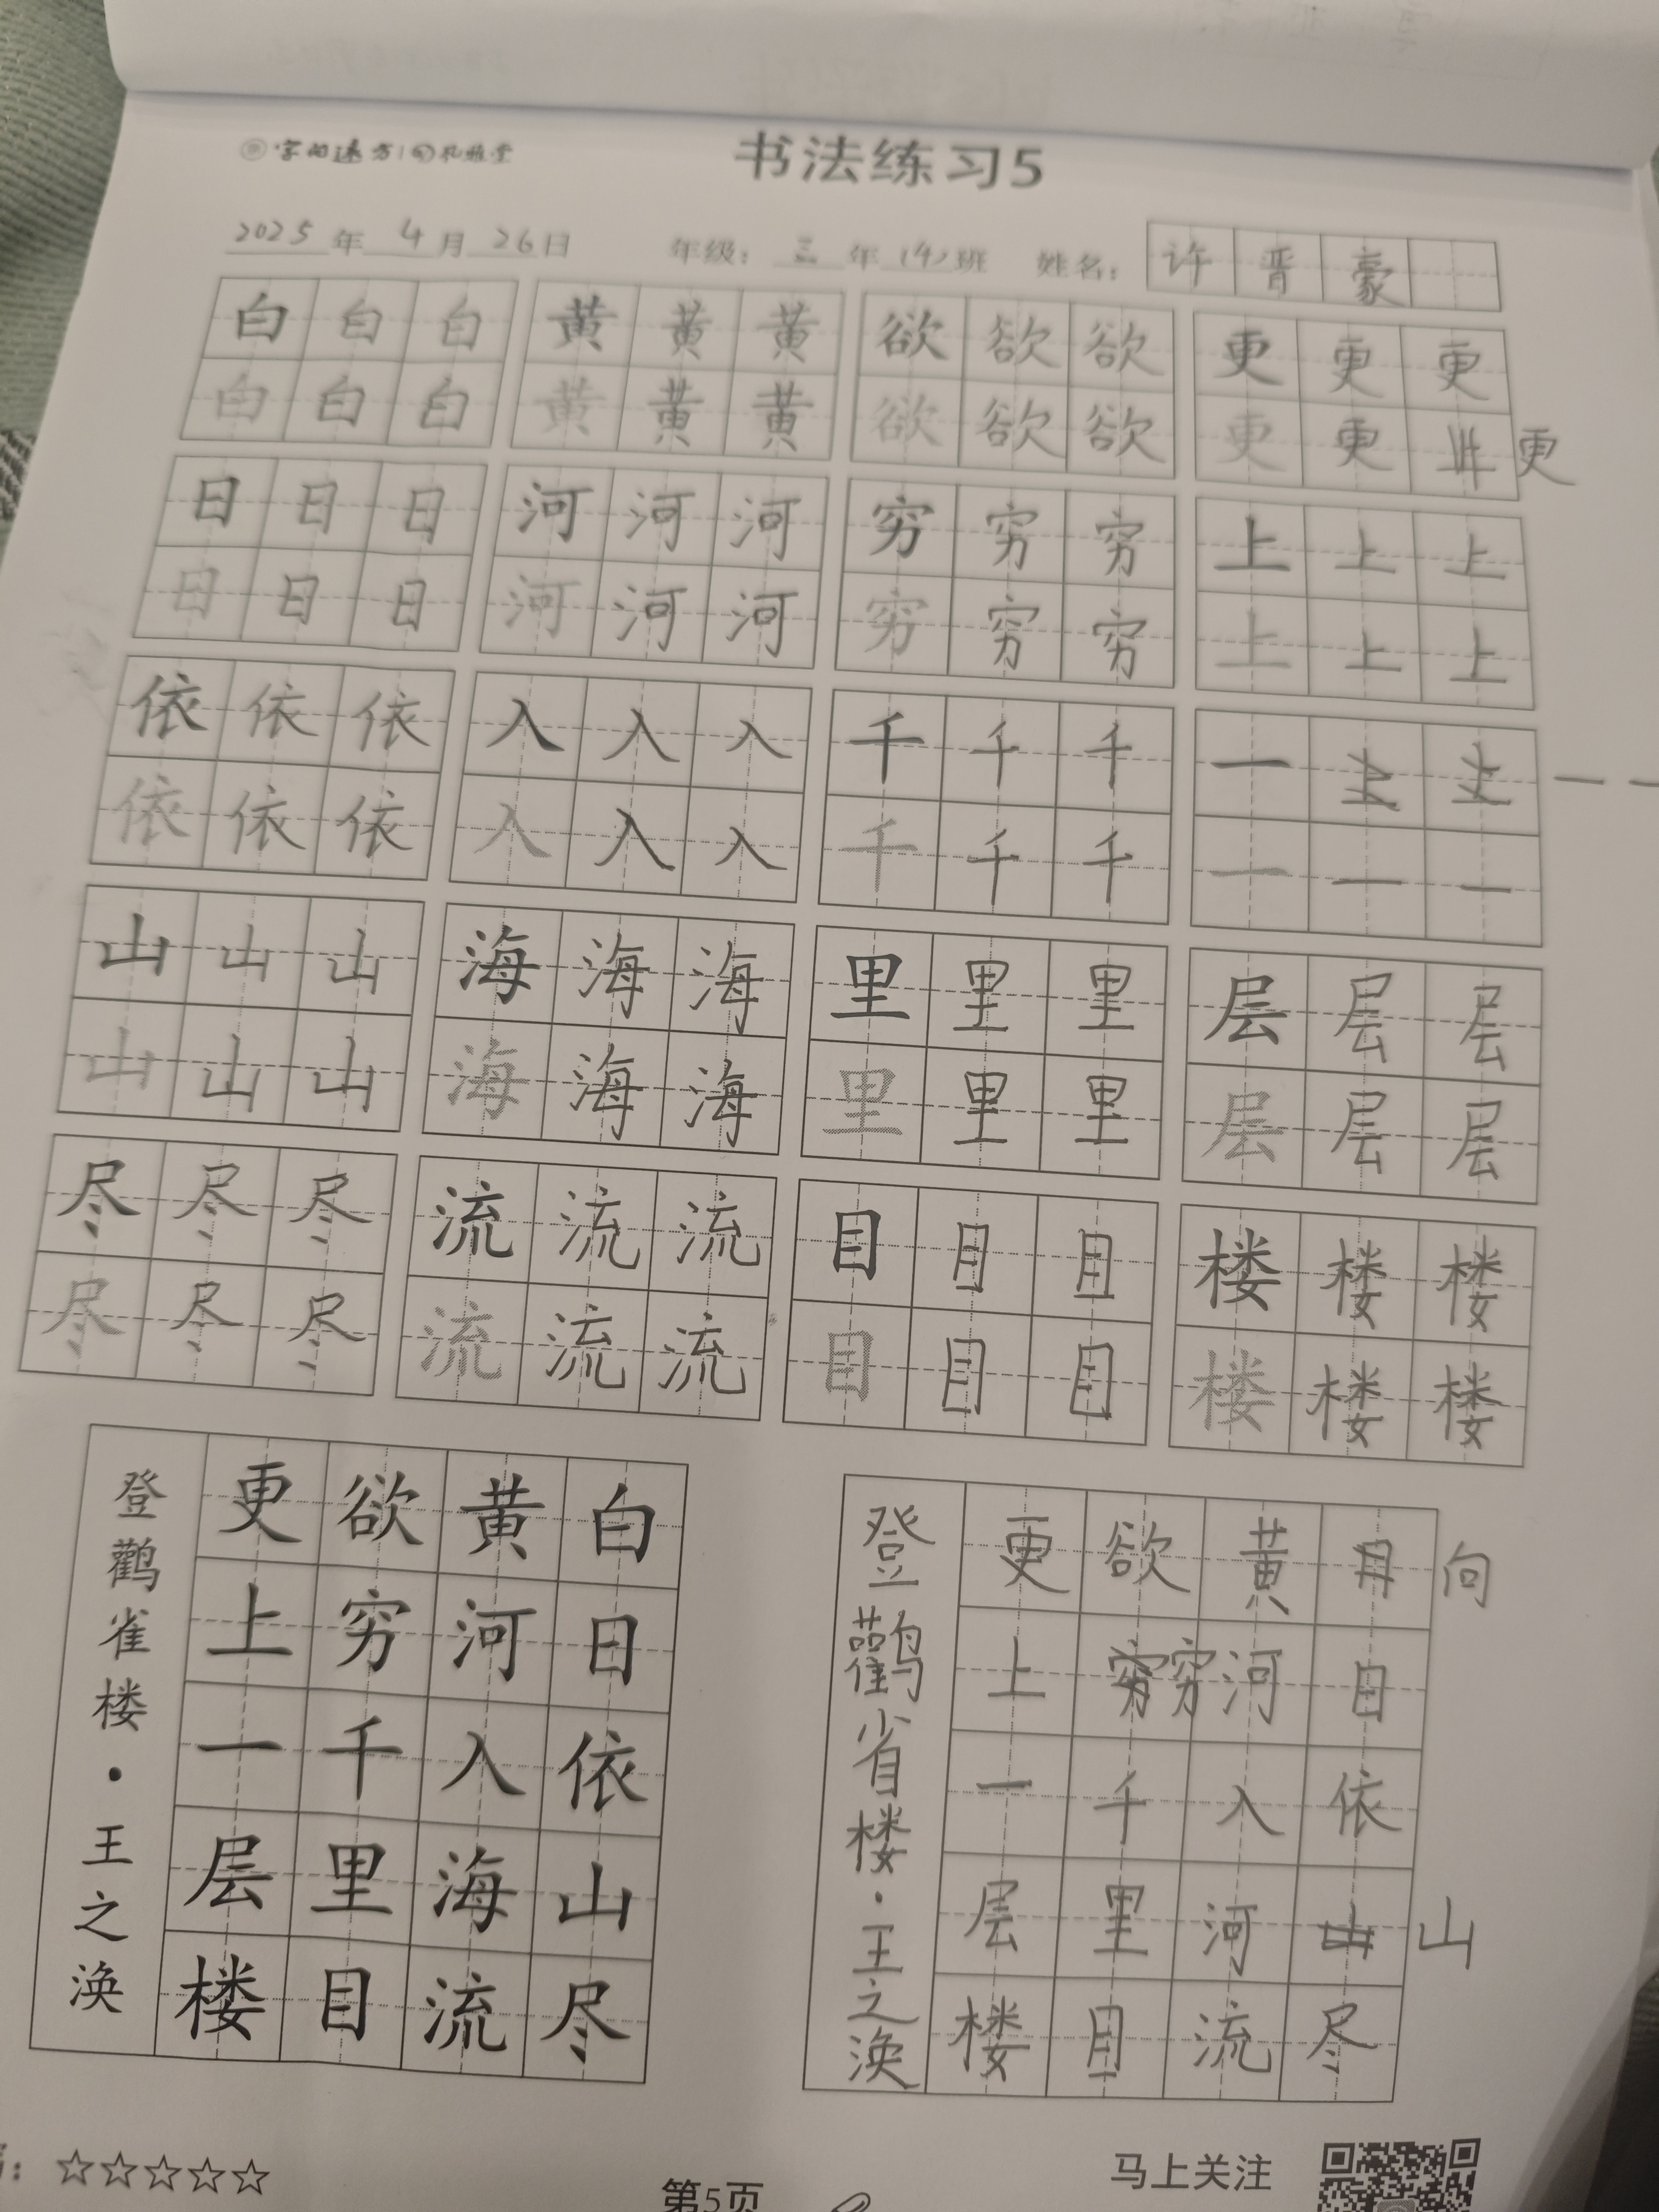 字的远方
书法练习5
2025年4月26日 年级：三年(4)班 姓名：许晋豪
白白白 黄黄黄 欲欲欲 更更更
白白白 黄黄黄 欲欲欲 更更更
日日日 河河河 穷穷穷 上上上
日日日 河河河 穷穷穷 上上上
依依依 入入入 千千千 一一一
依依依 入入入 千千千 一一一
山山山 海海海 里里里 层层层
山山山 海海海 里里里 层层层
尽尽尽 流流流 目目目 楼楼楼
尽尽尽 流流流 目目目 楼楼楼
白日依山尽
黄河入海流
欲穷千里目
更上一层楼
登鹳雀楼·王之涣
向日依山尽
黄河入河流
欲穷千里目
更上一层楼
登鹳省楼·王之涣
☆☆☆☆☆
第5页
马上关注